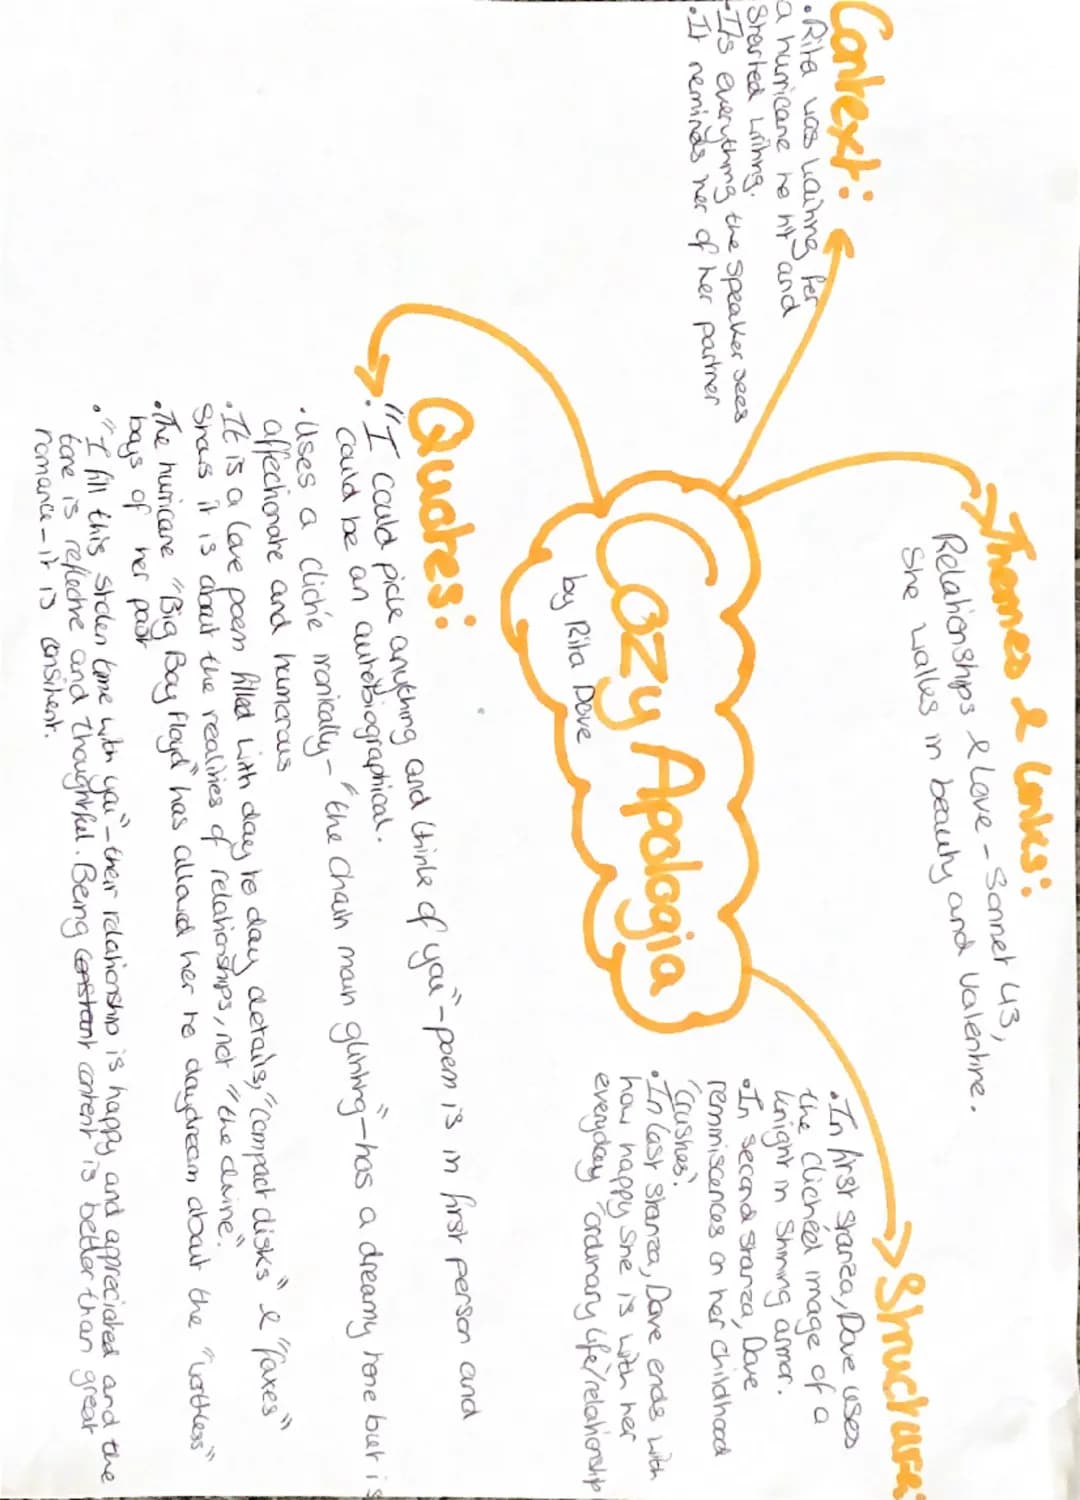 Cozy Apologia
by Rita Dove
Context:
• Rita was waiting for
a hurricane to hit and
started writing.
• It's everything the speaker sees
• It reminds her of her partner
Themes & Links:
Relationships & Love - Sonnet 43,
She walks in beauty and Valentine.
Structure:
• In first stanza, Dove uses
the clichéd image of a
knight in shining armor.
• In second stanza, Dove
reminiscences on her childhood
'crushes'.
• In last stanza, Dove ends with
how happy she is with her
everyday 'ordinary life/relationship
Quotes:
• "I could pick anything and think of you" - poem is in first person and
could be an autobiographical.
• Uses a cliché ironically - "the chain main glinting" - has a dreamy tone but is
affectionate and humorous
• It is a love poem filled with day to day details, "compact disks" & "faxes"
Shows it is about the realities of relationships, not "the divine".
• The hurricane "Big Bay Floyd" has allowed her to daydream about the "worthless"
boys of her past
• "I fill this stolen time with you" - their relationship is happy and appreciated and the
tone is reflective and thoughtful. Being constant content is better than great
romance - it is consitent.